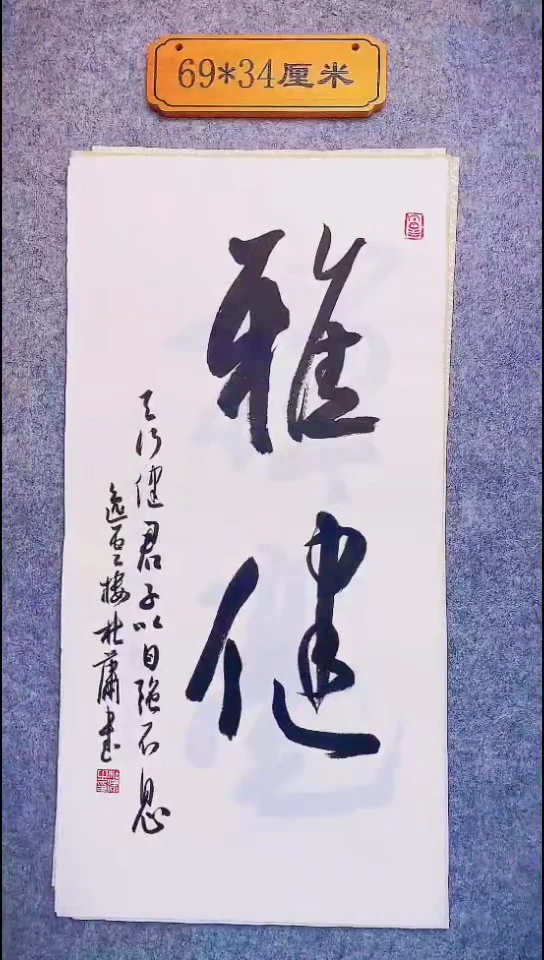 69*34厘米
雅健
天行健君子以自强不息
逸百二楼杜萧书